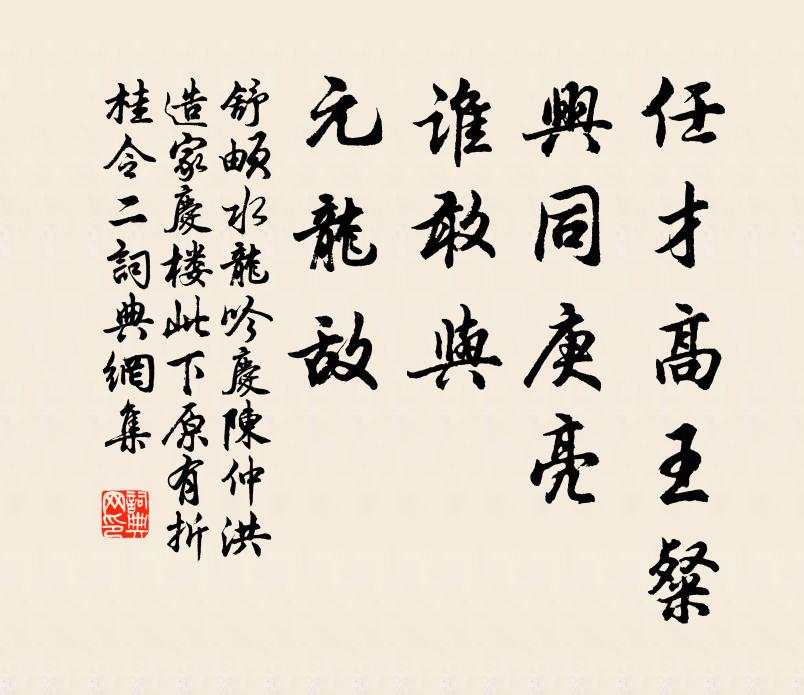 任才高王粲
興同庚亮
誰敢與
元龍敌
舒頔水龍吟慶陳仲洪
造家慶楼此下原有折
桂令二詞典網集
詞典网印